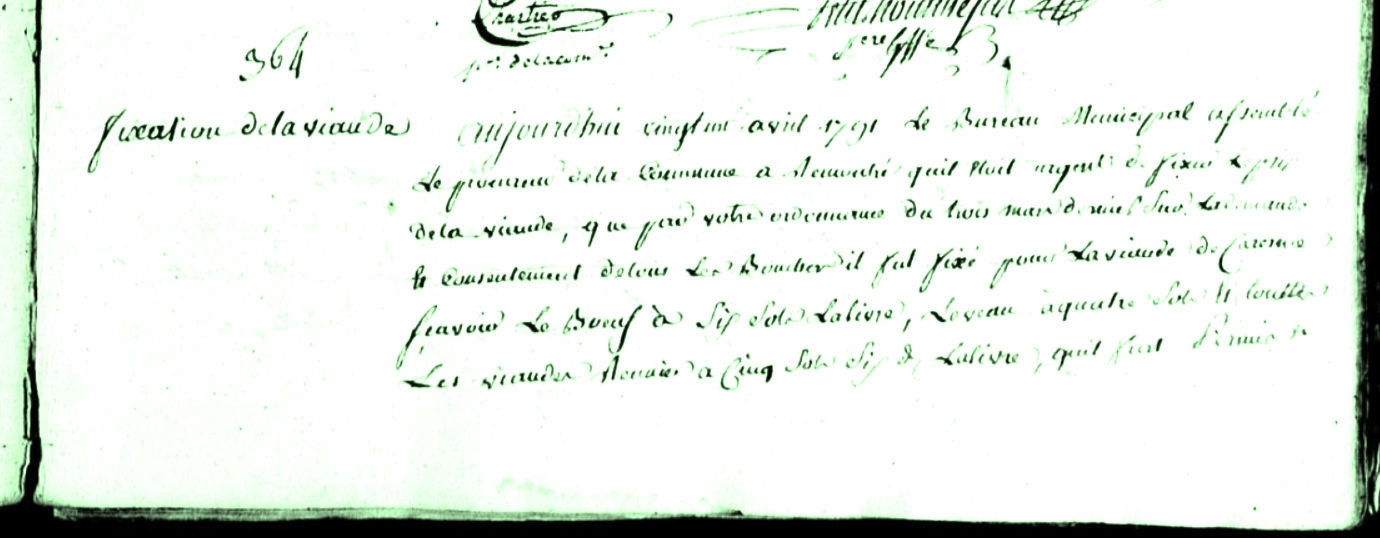 Chartre
pr. delacomne
364
fixation dela viande
aujourdhui vingt un avril 1791 Le Bureau Municipal assemblé
Le procureur dela Commune a Remontré quil Etoit urgent de fixer Le prix
dela viande, que par votre ordonnance du trois mars dernier Sur La demande
et Consentement detous Les Bouchers il fut fixé pour Laviande de Caresme
scavoir Le Boeuf à Six Sols Lalivre, Leveau àquatre Sols Et toutes
Les viandes Reunies a Cinq Sols Six d. Lalivre, quil fut Permis